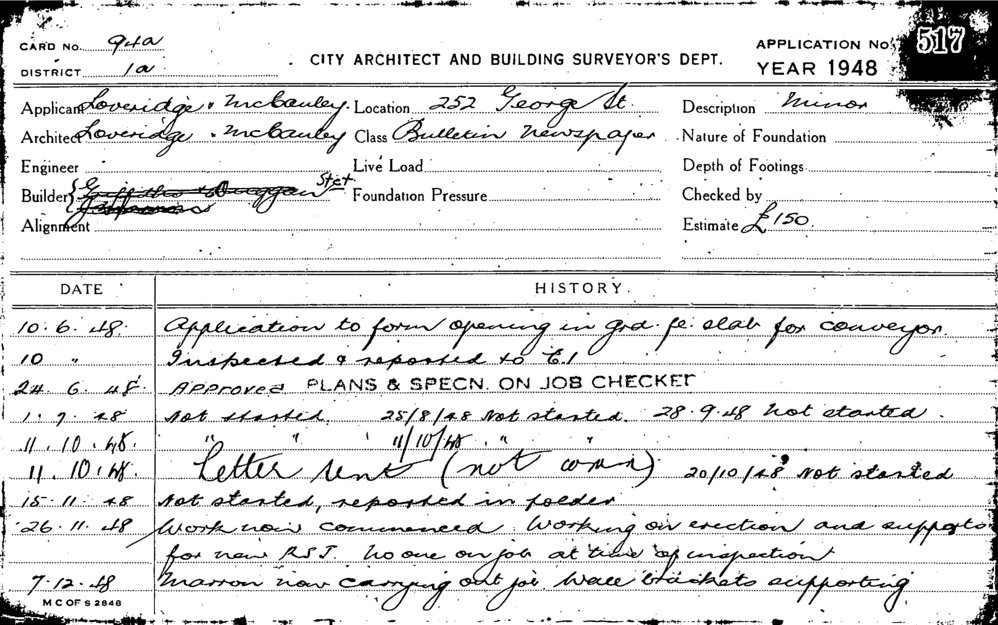 CARD No. 94a
DISTRICT 1a
CITY ARCHITECT AND BUILDING SURVEYOR'S DEPT.
APPLICATION No. 517
YEAR 1948
Applicant Loveridge & McCauley. Location 252 George St. Description Minor
Architect Loveridge & McCauley Class Bulletin Newspaper Nature of Foundation
Engineer Live Load Depth of Footings
Builder Griffiths & Duggan Stet Foundation Pressure Checked by
Alignment Estimate £150.
DATE HISTORY.
10.6.48. Application to form opening in grd. fl. slab for conveyor.
10 " Inspected & reported to
24.6.48. Approved PLANS & SPECN. ON JOB CHECKET
1.7.48 Not started. 25/8/48 Not started. 28.9.48 Not started.
11.10.48. " " 11/10/48 . " "
11.10.48. Letter sent (not comm) 20/10/48, Not started
15.11.48 Not started, reported in folder
26.11.48 Work now commenced. Working on erection and supports
for new RSJ. No one on job at time of inspection
7.12.48 now carrying out job. Wall brackets supporting
M C OF S 2848